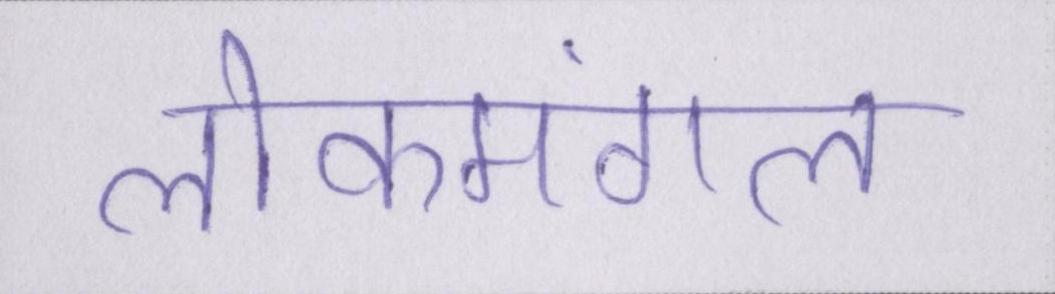 लोकमंगल